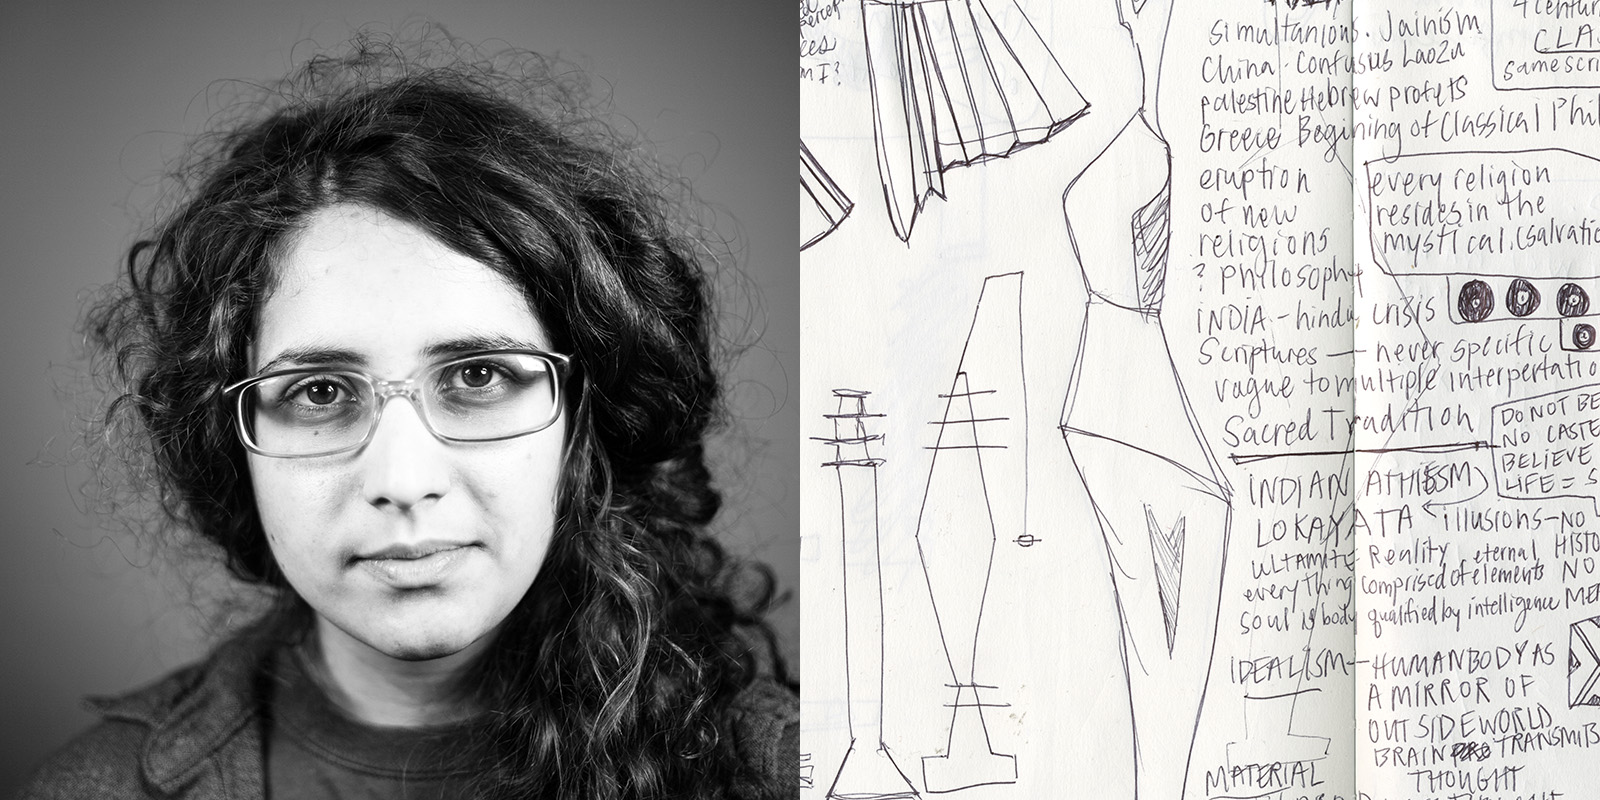 ces
m I?
simultanious. Jainism
China - Confusus Laozu
palestine Hebrew profets
Greece Begining of Classical Phil
eruption
of new
religions
? Philosophy
INDIA - hindu crisis
Scriptures — never specific
vague to multiple interpertatio
Sacred Tradition
4 centur
CLAS
same scri
every religion
resides in the
mystical. (salvatio
DO NOT BE
NO CASTE
BELIEVE
LIFE = S
INDIAN ATHIESM
LOKAYATA illusions - NO
ULTAMITE Reality eternal HISTO
everything comprised of elements NO
soul is body qualified by intelligence MEM
IDEALISM - HUMAN BODY AS
A MIRROR OF
OUTSIDE WORLD
BRAIN TRANSMITS
THOUGHT
MATERIAL